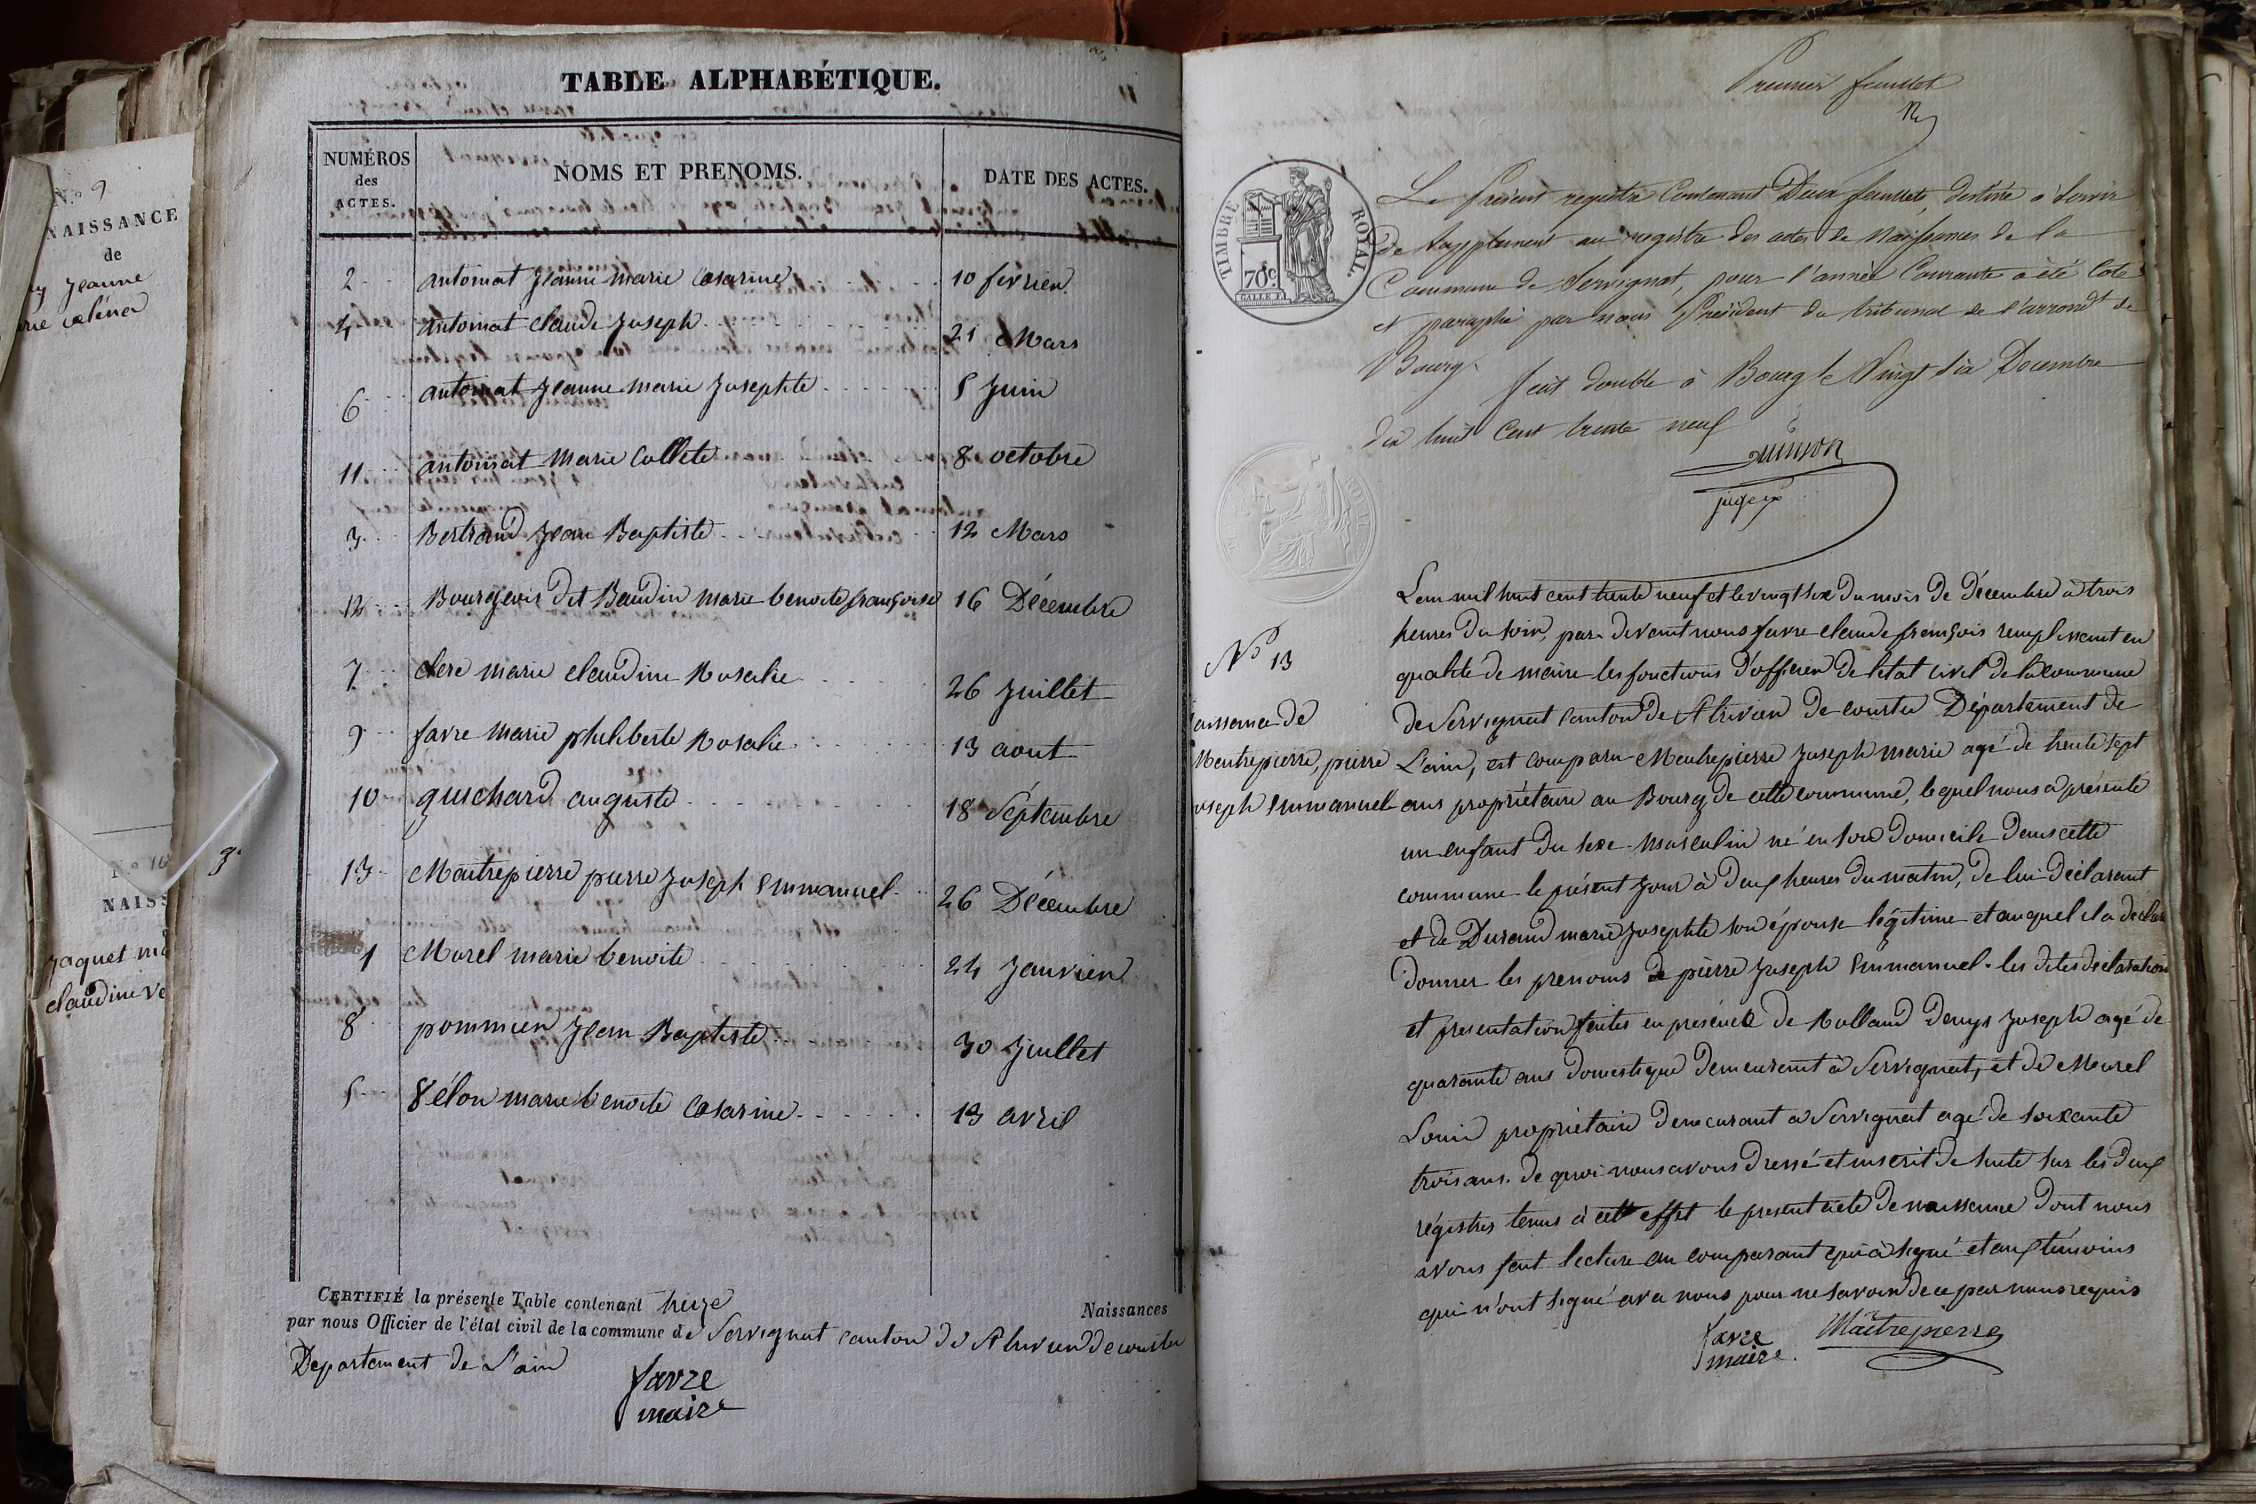 N.o 9
NAISSANCE
de
Jeanne
N.o 10
NAISS
jaquet ma
claudine ve
TABLE ALPHABÉTIQUE.
NUMÉROS des ACTES. NOMS ET PRENOMS. DATE DES ACTES.
2 antoinat jeanne marie Césarine 10 fevrier
4 antoinat claude joseph 21 Mars
6 antoinat jeanne marie josephte 5 juin
11 antoinat marie Collete 8 octobre
3 Bertrand jean Baptiste 12 Mars
12 Bourgeois dit Baudin marie benoite françoise 16 Décembre
7 clere marie claudine Rosalie 26 juillet
9 favre marie philiberte Rosalie 13 aout
10 guichard auguste 18 Séptembre
13 Maitrepierre pierre joseph emmanuel 26 Décembre
1 Morel marie benoite 24 janvier
8 pommier jean Baptiste 30 juillet
5 Vélon marie benoite Césarine 13 avril
CERTIFIÉ la présente Table contenant treize Naissances
par nous Officier de l'état civil de la commune de Servignat canton de St trivier de courtes
Departement de L'ain
favre
maire
Premier feuillet
TIMBRE ROYAL.
70c.
Le Présent registre Contenant Deux feuillets, destiné à Servir
de Supplement au registre des actes de Naissances de la
Commune de Servignat, pour l'année Courante a été Coté
et paraphé par nous Président du tribunal de l'arrondt de
Bourg.
fait double à Bourg le Vingt six Decembre
dix huit Cent trente neuf
juge
L'an mil huit cent trente neuf et le vingt six du mois de décembre à trois
heures du soir, par devant nous favre claude françois remplissant en
No 13
qualité de maire les fonctions d'officier de l'état civil de la commune
aissance de
de Servignat canton de St trivier de courtes Département de
Maitrepierre, pierre
L'ain, est comparu Maitrepierre joseph marie agé de trente sept
oseph emmanuel
ans propriétaire au Bourg de cette commune, lequel nous a présenté
un enfant du sexe masculin né en son domicile dans cette
commune le présent jour à deux heures du matin, de lui déclarant
et de Durand marie josephte son épouse légitime et auquel il a déclaré
donner les prenoms de pierre joseph emmanuel. les dites declaration
et presentation faites en présence de Rolland denys joseph agé de
quarante ans domestique demeurant à Servignat, et de Morel
Louis propriétaire demeurant à Servignat agé de soixante
trois ans. de quoi nous avons dressé et inscrit de suite sur les deux
régistres tenus à cet effet le present acte de naissance dont nous
avons fait lecture au comparant qui a signé et aux témoins
qui n'ont signé avec nous pour ne savoir de ce par nous requis
favre
maire.
Maitrepierre